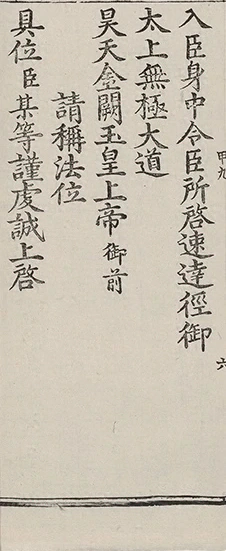 甲九
六
入臣身中令臣所啓速達徑御
太上無極大道
昊天金闕玉皇上帝御前
請稱法位
具位臣某等謹虔誠上啓